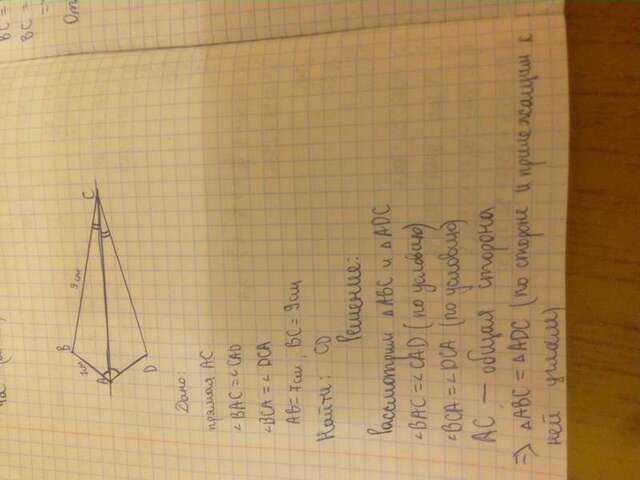 BC =
BC =
B
7см
9 см
A
C
D
Дано:
прямая AC
∠BAC = ∠CAD
∠BCA = ∠DCA
AB = 7см, BC = 9см
Найти: CD
Решение:
Рассмотрим △ABC и △ADC
∠BAC = ∠CAD (по условию)
∠BCA = ∠DCA (по условию)
AC — общая сторона
=> △ABC = △ADC (по стороне и прилежащим к
ней углам)